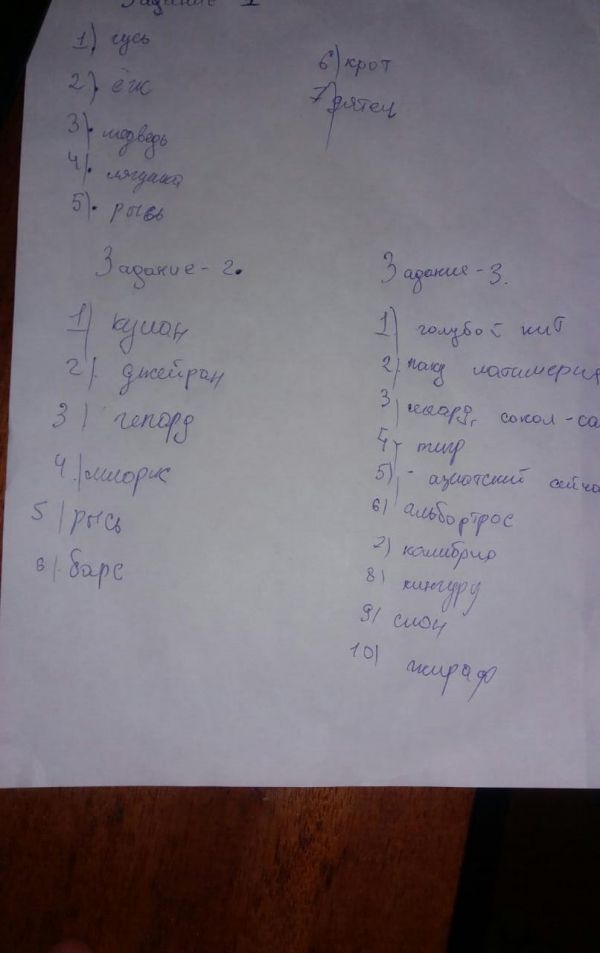 Задание 1
1) гусь
2) ёж
3) медведь
4) лягушка
5) рысь
6) крот
7) дятел
Задание - 2.
1) кулан
2) джейран
3) гепард
4)
5) рысь
6) барс
Задание - 3.
1) голубой кит
2) латимерия
3) сокол - са
4) тигр
5) - азиатский сейча
6) альбортрос
7) колибрио
8) кингуру
9) слон
10) жираф